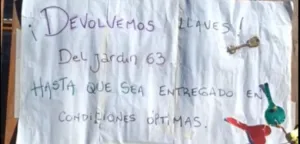 ¡DEVOLVEMOS LLAVES!
Del jardín 63
HASTA QUE SEA ENTREGADO EN
CONDICIONES OPTIMAS.